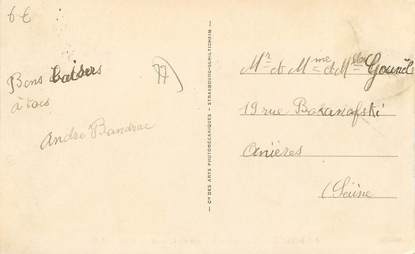 6 €
Bons baisers
à tous
André Bandrac
77
Cie DES ARTS PHOTOMÉCANIQUES - STRASBOURG-SCHILTIGHEIM
Mr et Mme et Mlle Gounel
19 rue Bakanofski
Anières
(Seine